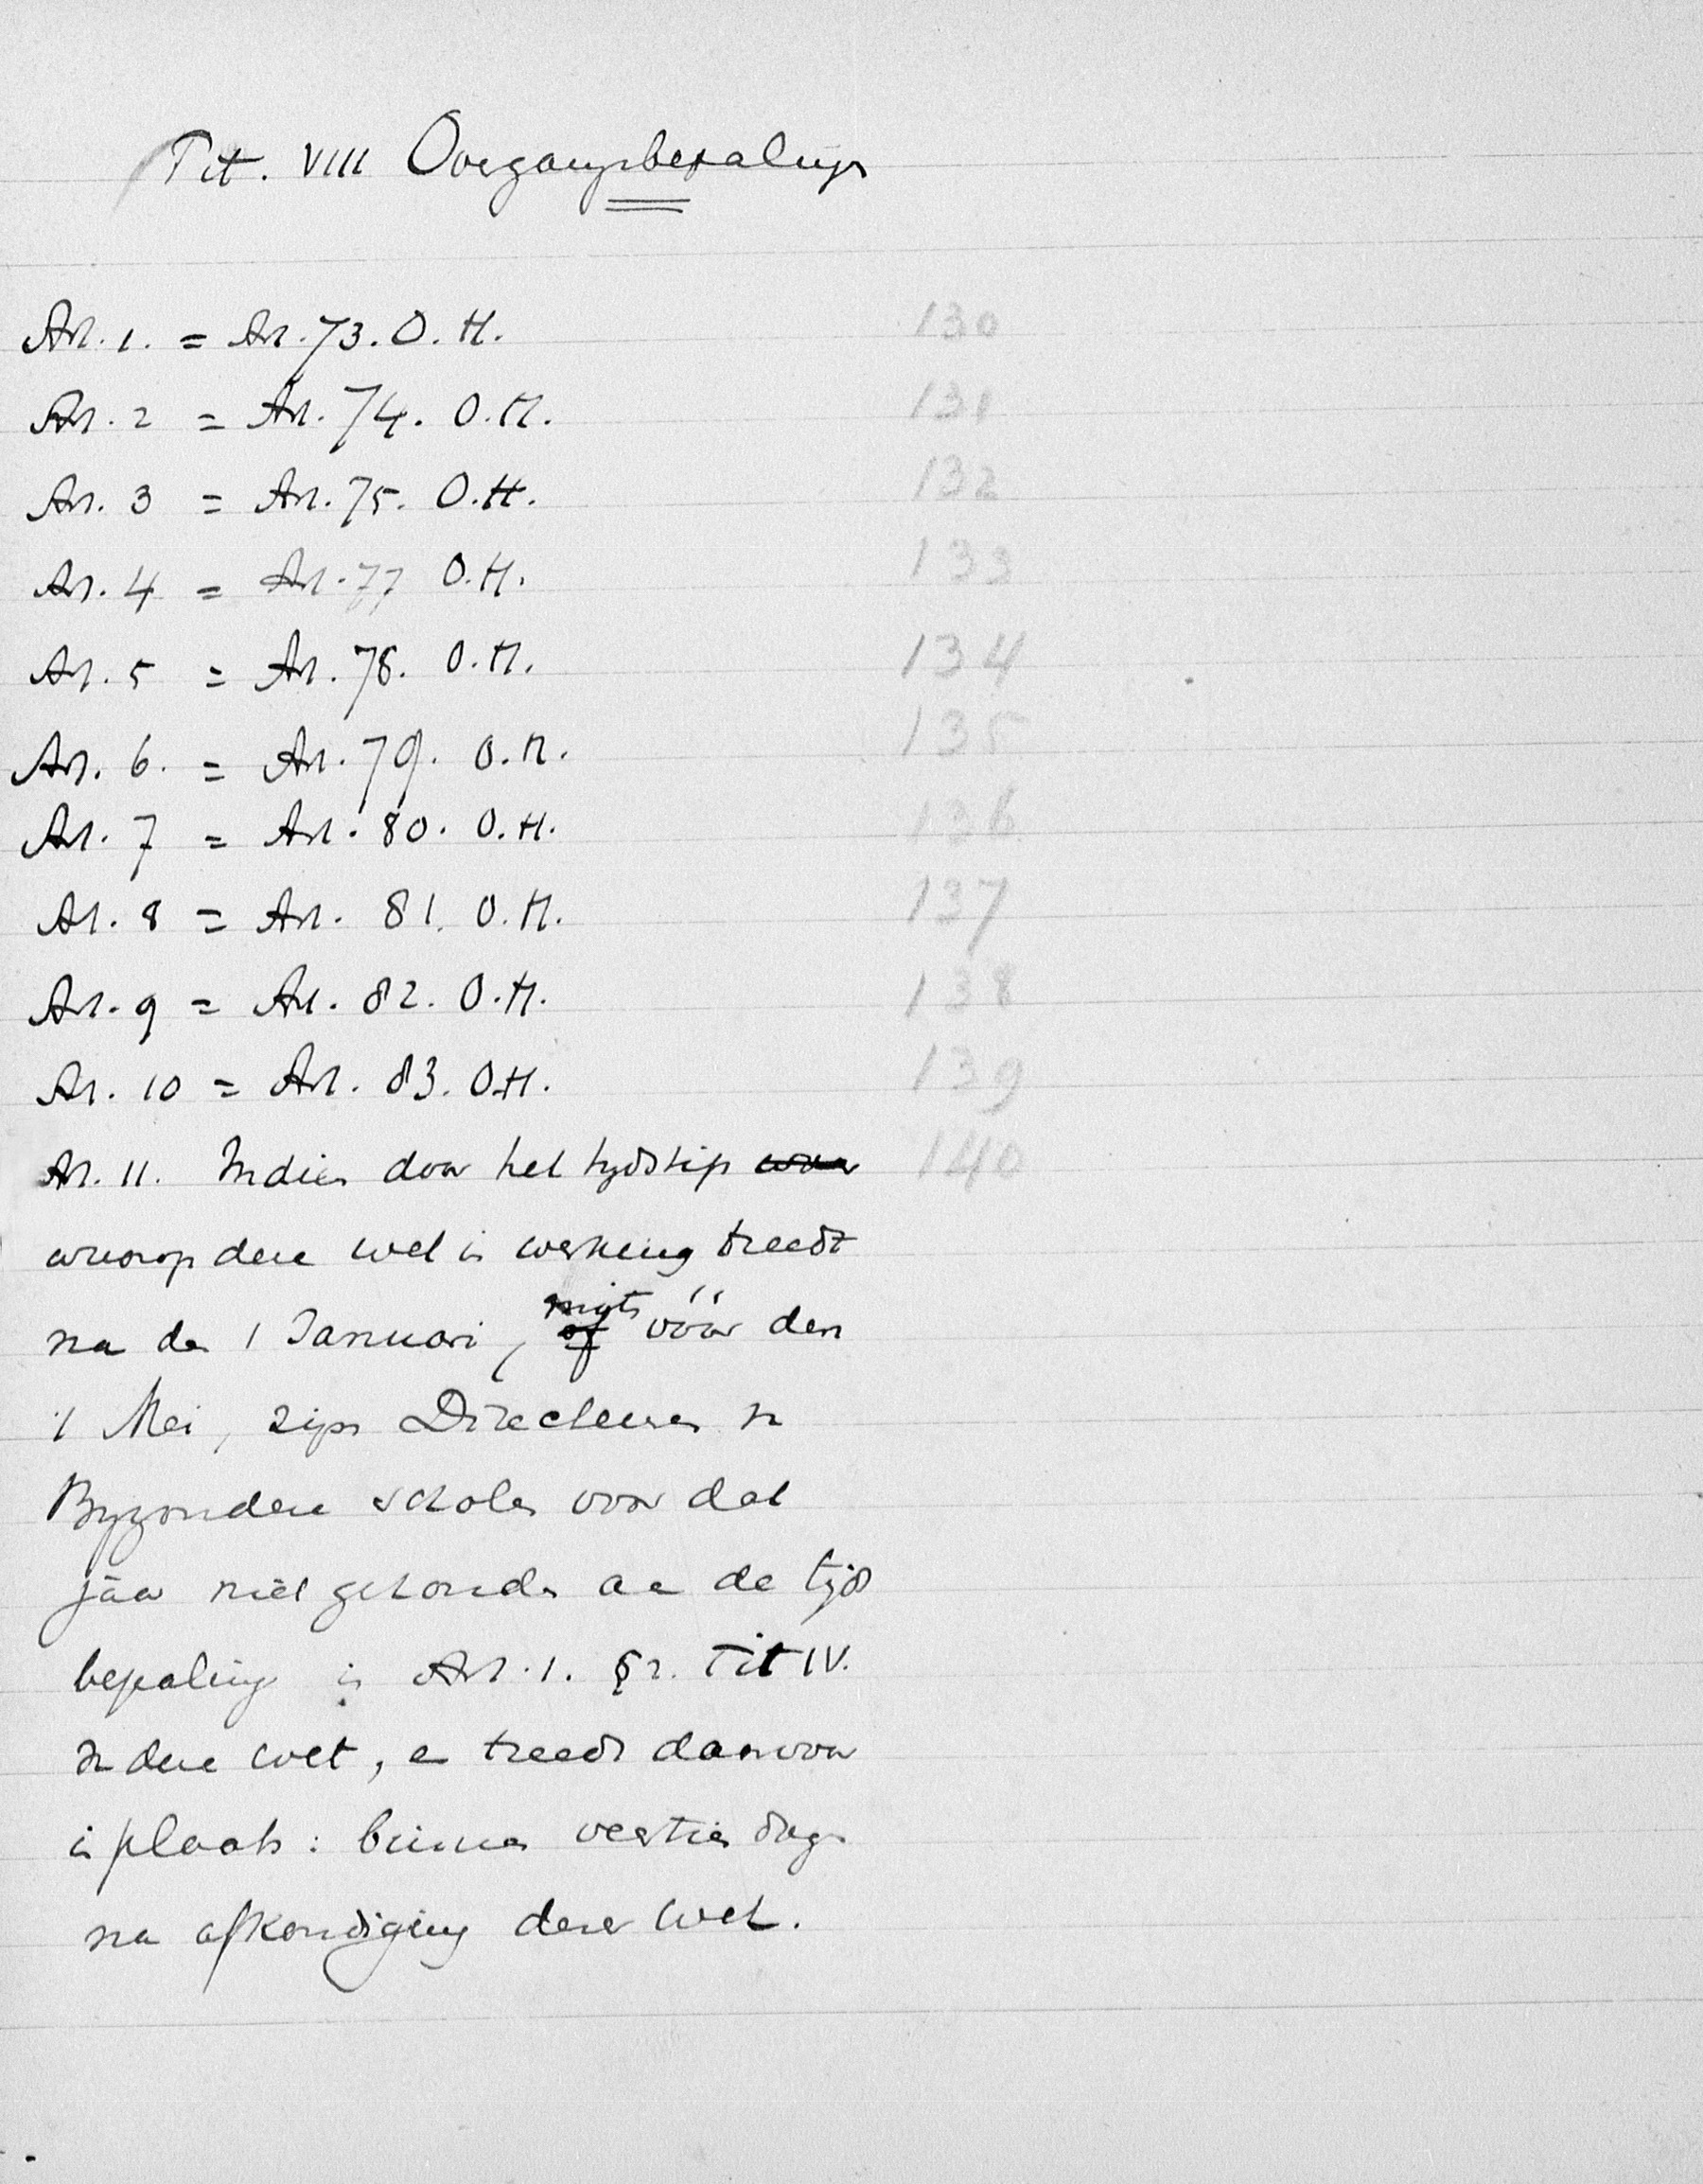 Tit. VIII Overgangsbepalingen
Art. 1. = Art. 73. O. H. 130
Art. 2 = Art. 74. O. H. 131
Art. 3 = Art. 75. O. H. 132
Art. 4 = Art. 77 O. H. 133
Art. 5 = Art. 78. O. H. 134
Art. 6. = Art. 79. O. H. 135
Art. 7 = Art. 80. O. H. 136
Art. 8 = Art. 81. O. H. 137
Art. 9 = Art. 82. O. H. 138
Art. 10 = Art. 83. O. H. 139
Art. 11. Indien door het tydstip 140
waarop deze wet in werking treedt
na den 1 Januari, mits vóór den
1 Mei, zijn Directeuren en
Byzondere scholen voor dat
jaar niet gehouden aan de tijds
bepaling in Art. 1. § 2. Tit IV.
dezer wet, en treedt daarvoor
in plaats: binnen veertien dagen
na afkondiging dezer wet.